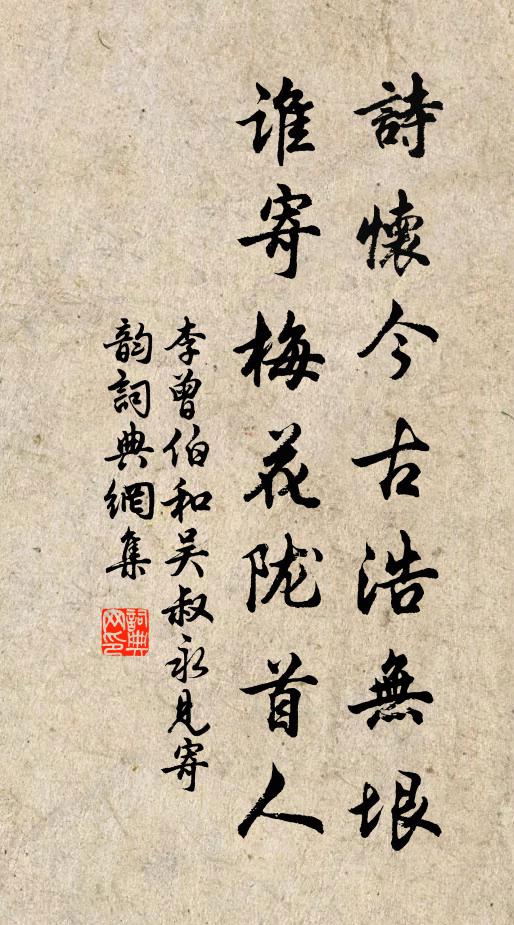 詩懷今古浩無垠
谁寄梅花陇首人
李曾伯和吴叔永見寄
韵詞典網集
詞典网印